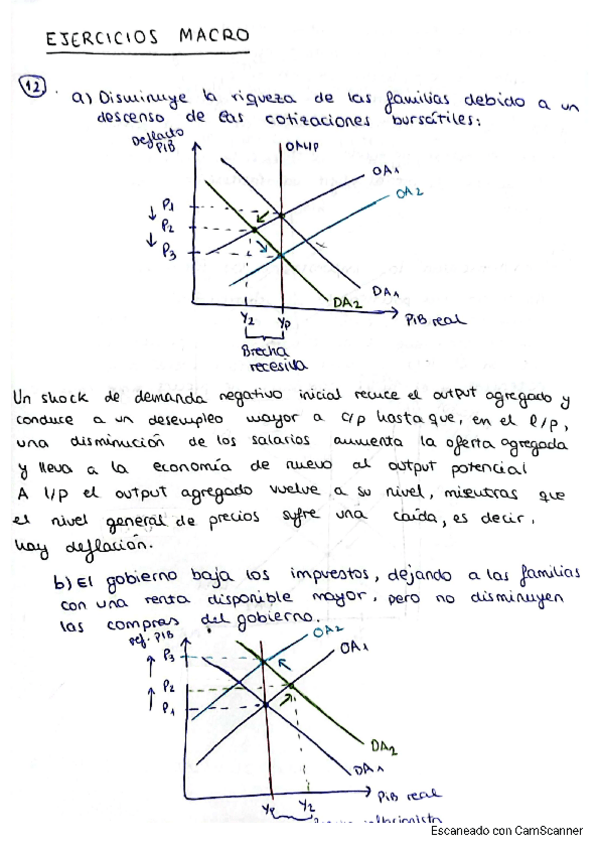 EJERCICIOS MACRO
12.
a) Disminuye la riqueza de las familias debido a un
descenso de las cotizaciones bursátiles:
Deflacto
PIB
OALP
OA1
OA2
P1
P2
P3
DA1
DA2
Y2 YP
PIB real
Brecha
recesiva
Un shock de demanda negativo inicial reduce el output agregado y
conduce a un desempleo mayor a c/p hasta que, en el l/p,
una disminución de los salarios aumenta la oferta agregada
y lleva a la economía de nuevo al output potencial
A l/p el output agregado vuelve a su nivel, mientras que
el nivel general de precios sufre una caída, es decir,
hay deflación.
b) El gobierno baja los impuestos, dejando a las familias
con una renta disponible mayor, pero no disminuyen
las compras del gobierno.
Def. PIB
OA2
OA1
P3
P2
P1
DA2
DA1
PIB real
YP Y2
Escaneado con CamScanner